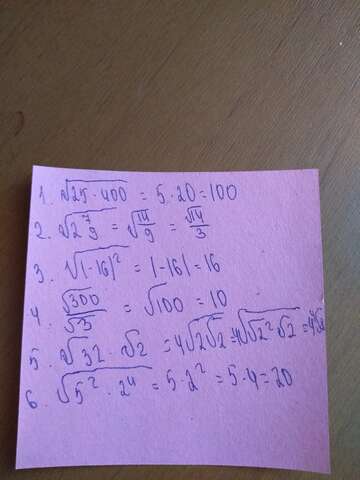 1. √25·400 = 5·20=100
2. √2 7/9 = √14/9 = √14/3
3. √(-16)² = |-16| = 16
4. √300/√3 = √100 = 10
5. √32 · √2 = 4√2√2 =
6. √5²·2⁴ = 5·2² = 5·4=20